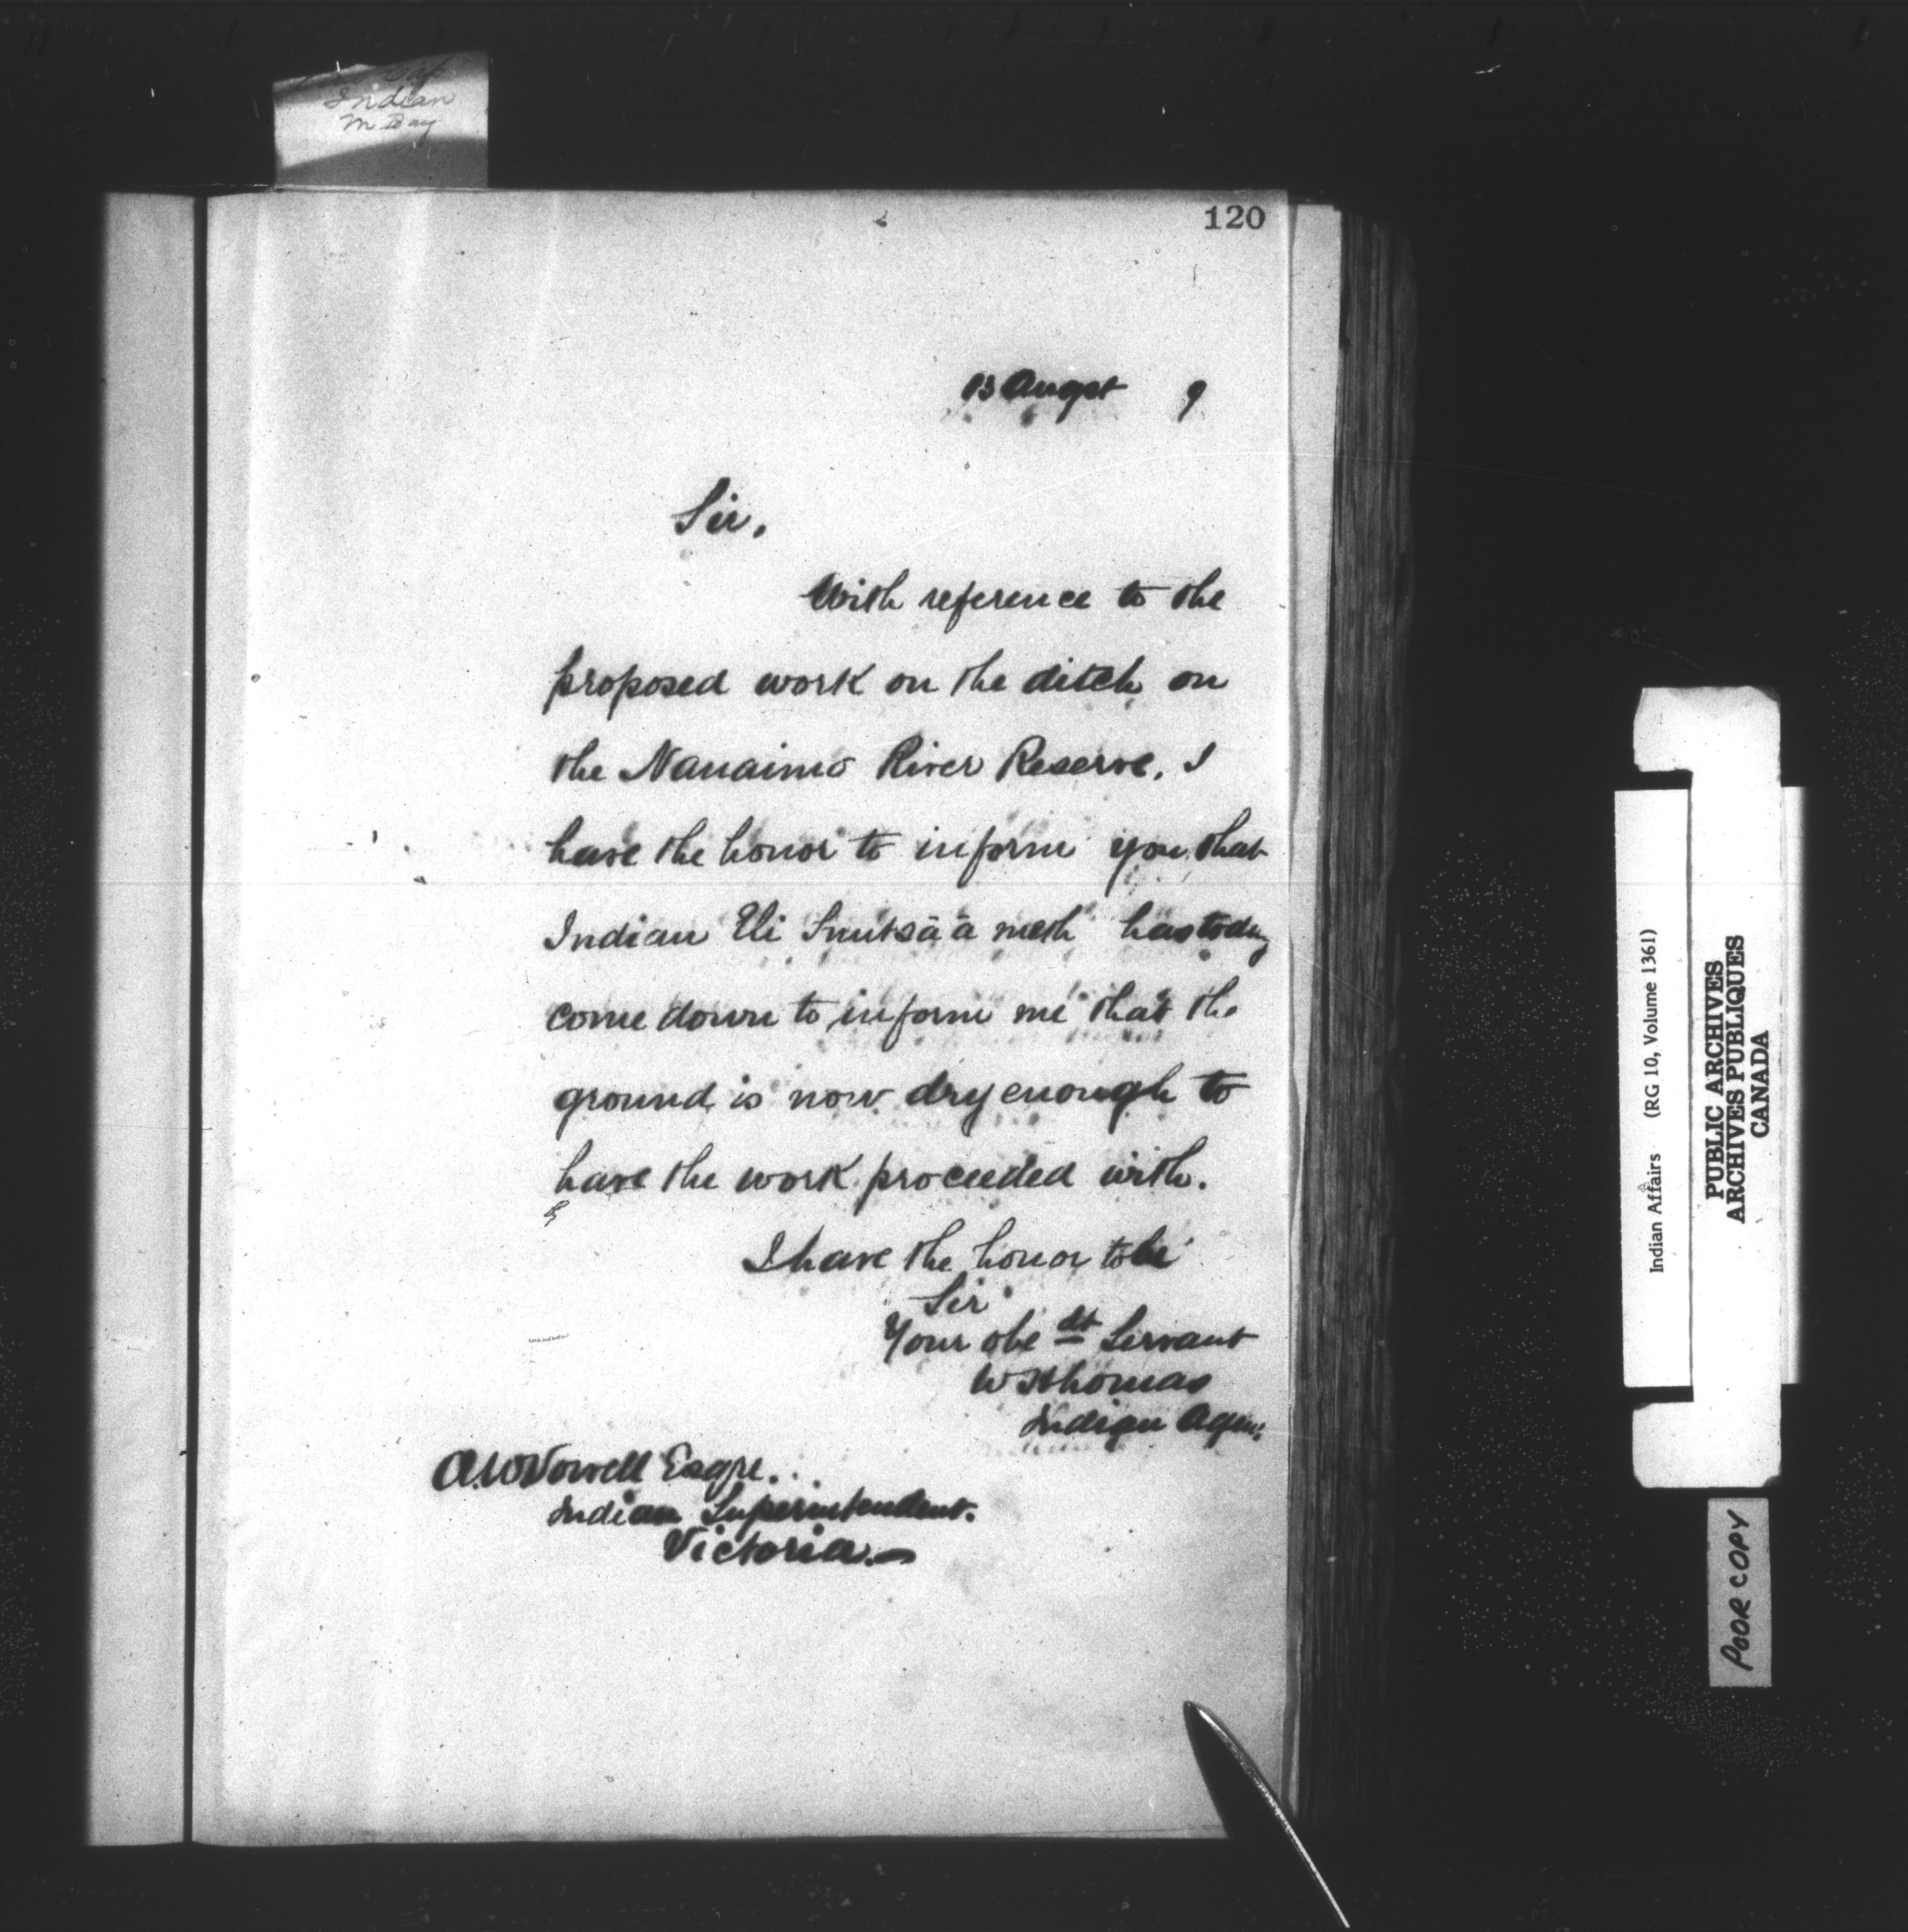 Indian
120
13 Augst 9
Sir,
With reference to the
proposed work on the ditch on
the Nanaimo River Reserve, I
have the honor to inform you that
Indian Eli has today
come down to inform me that the
ground is now dry enough to
have the work proceeded with.
I have the honor to be
Sir
Your obedt Servant
Indian Agent
A.W. Vowell Esqre.
Indian Superintendent.
Victoria.
Indian Affairs (RG 10, Volume 1361)
PUBLIC ARCHIVES
ARCHIVES PUBLIQUES
CANADA
POOR COPY